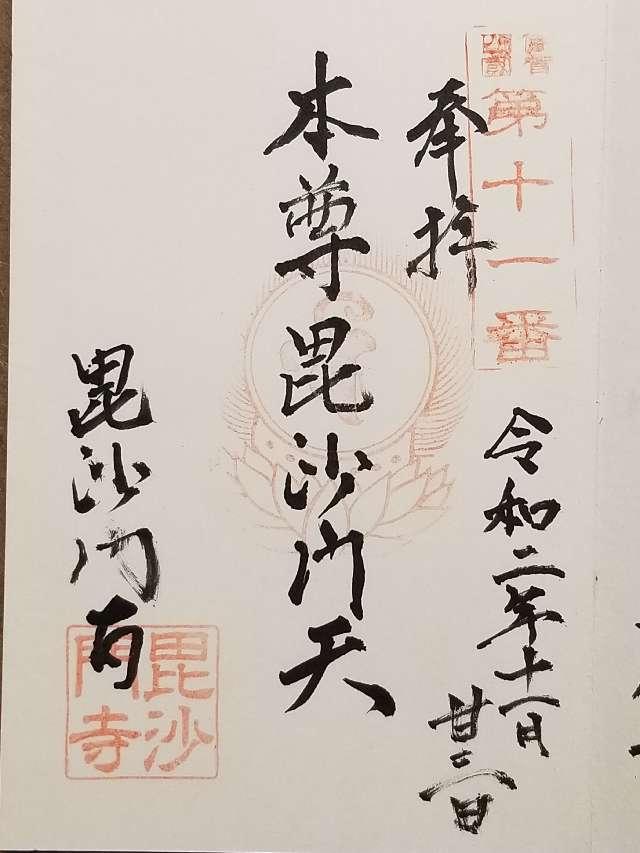 第十一番
奉拝
令和二年十一月
廿三日
本尊毘沙門天
毘沙門寺
毘沙
門寺